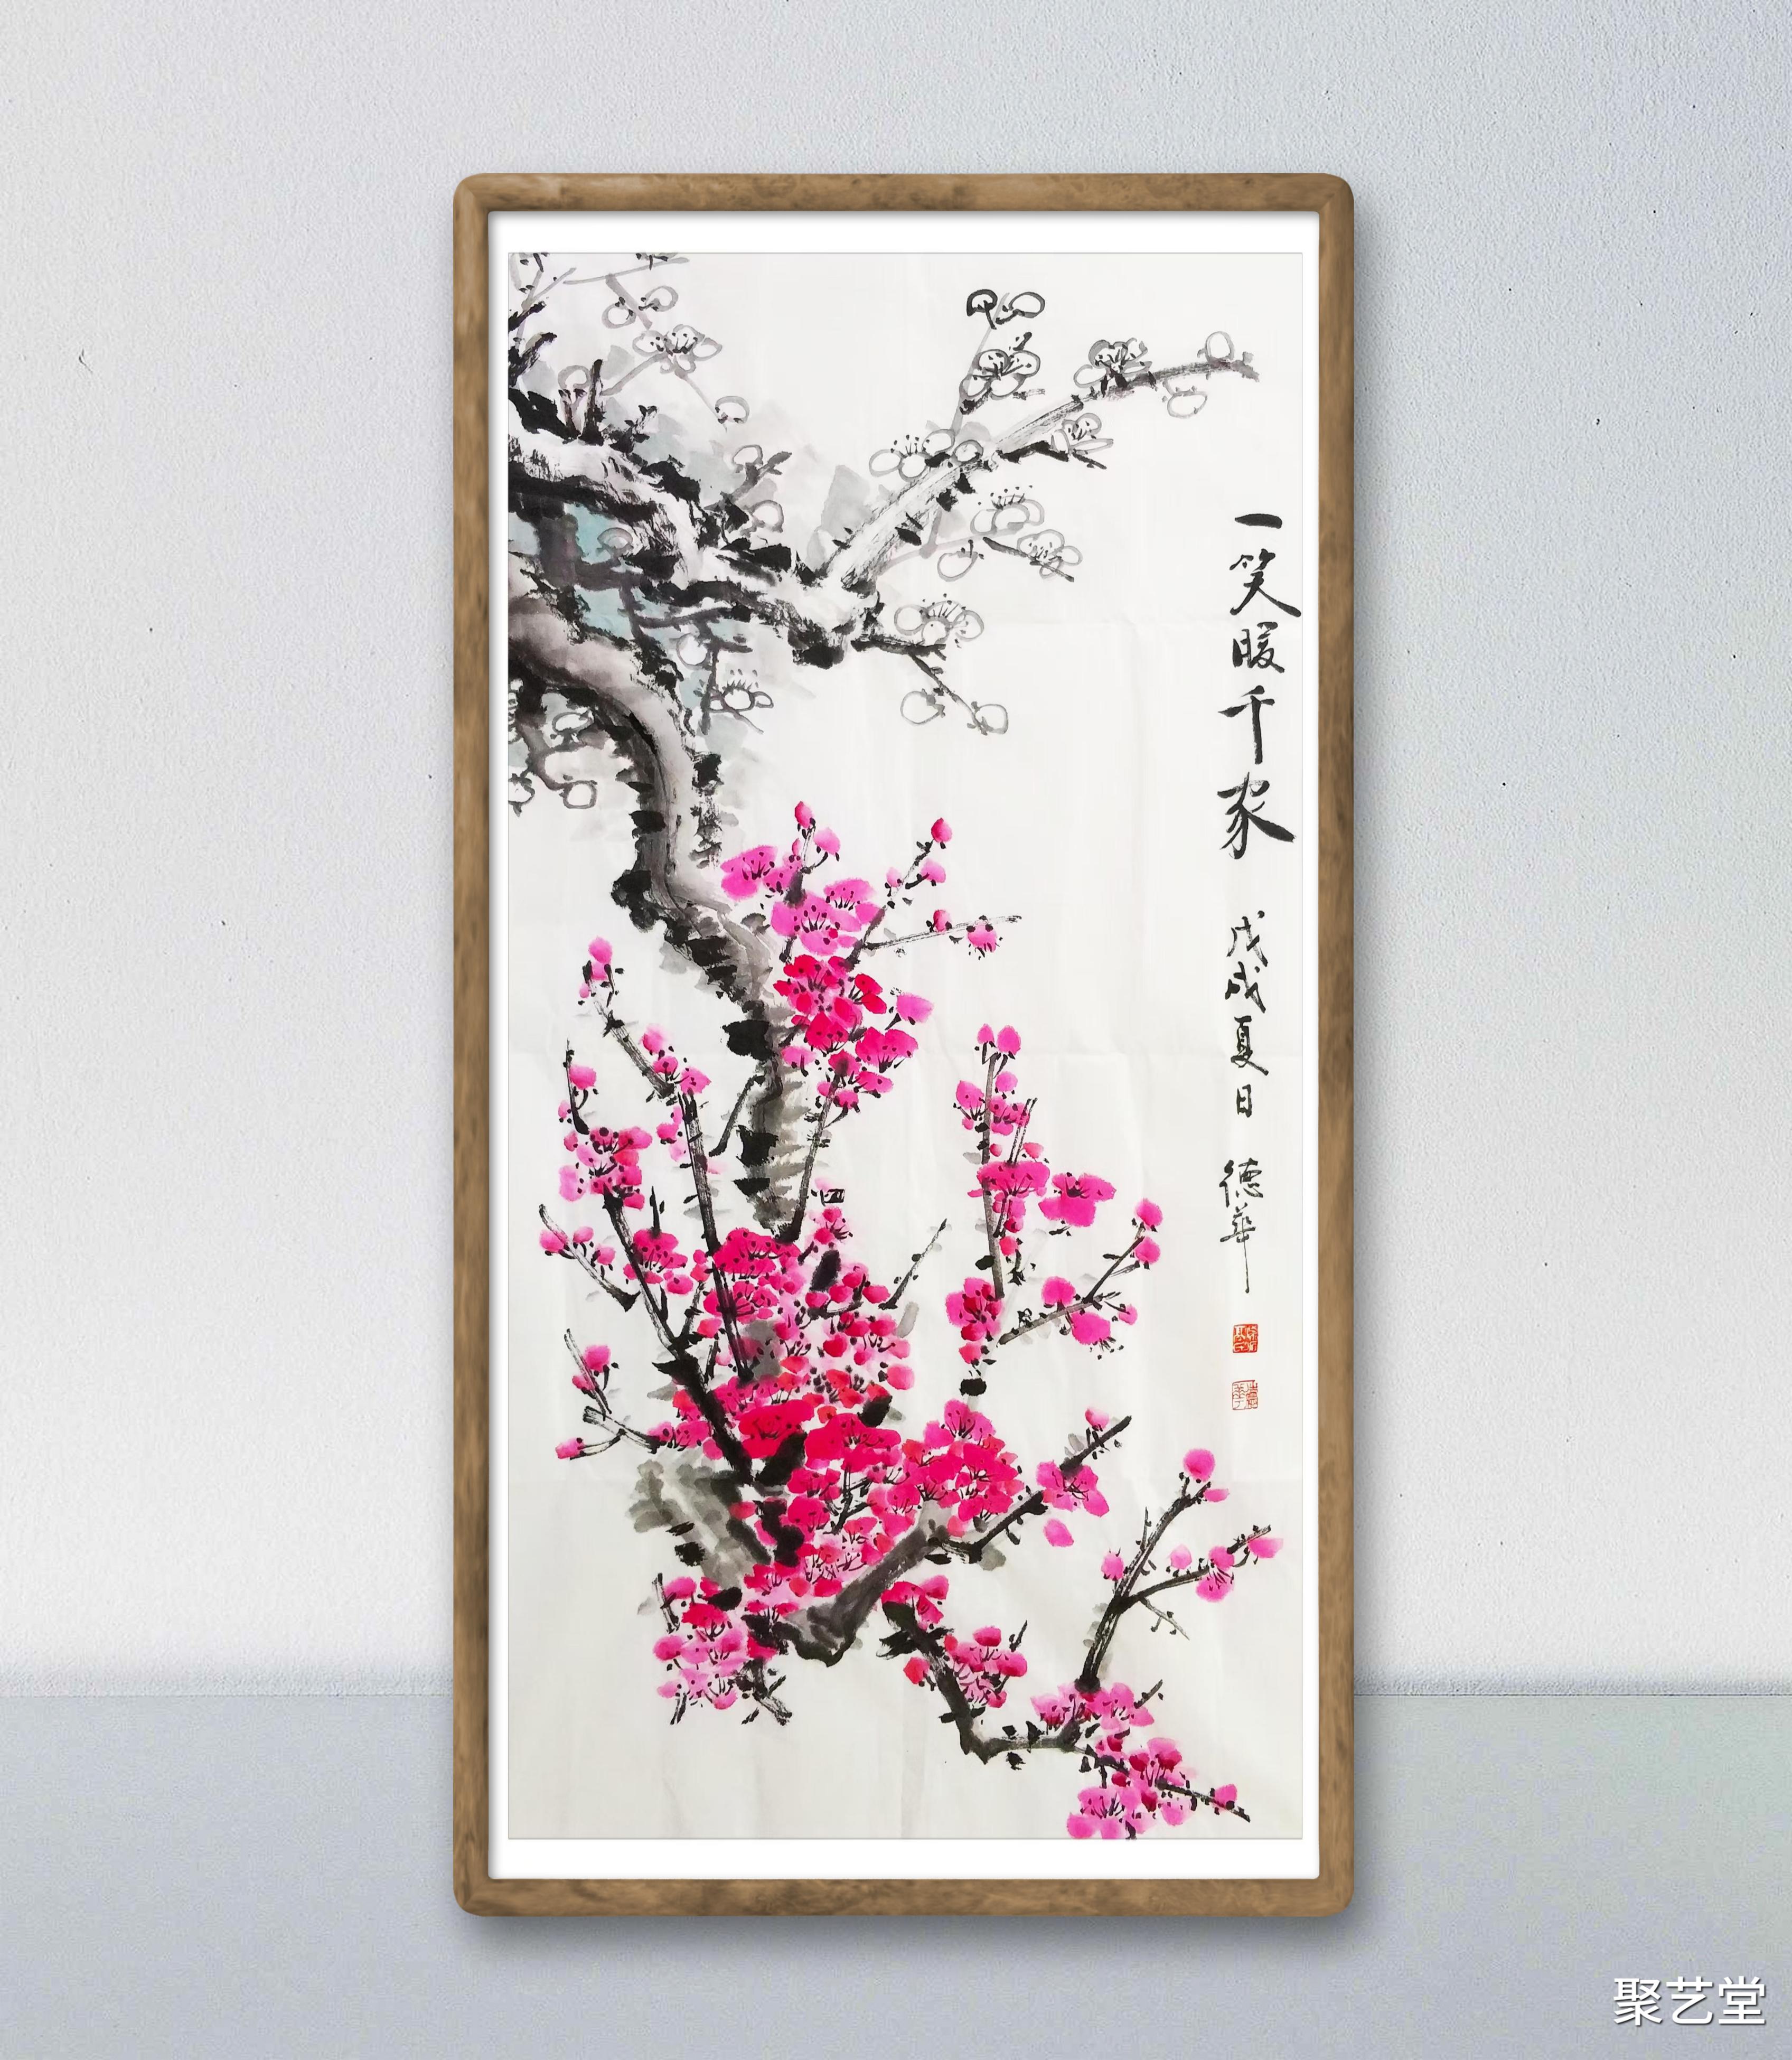 一笑暖千家 戊戌夏日 德華
聚艺堂